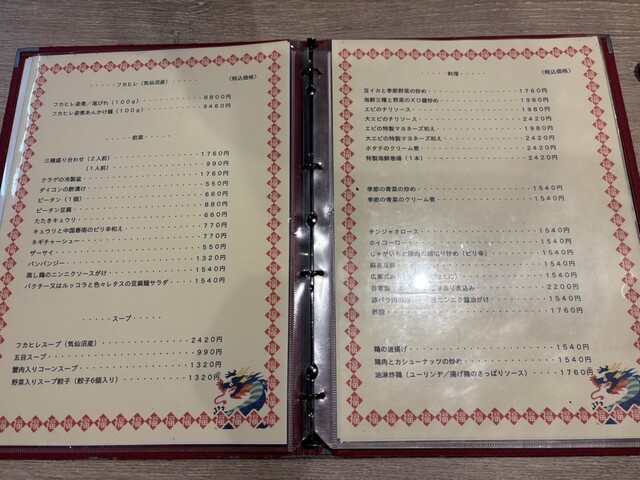 ・・・・・・フカヒレ（気仙沼産）・・・・・・ （税込価格）
フカヒレ姿煮／尾びれ（100g）・・・・・・8800円
フカヒレ姿煮あんかけ麺（100g）・・・・・・8460円
・・・・・・前菜・・・・・・
三種盛り合わせ（2人前）・・・・・・1760円
（1人前）・・・・・・990円
クラゲの冷製盆・・・・・・1760円
ダイコンの酢漬け・・・・・・550円
ピータン（1個）・・・・・・660円
ピータン豆腐・・・・・・880円
たたきキュウリ・・・・・・660円
キュウリと中国春雨のピリ辛和え・・・・・・770円
ネギチャーシュー・・・・・・770円
ザーサイ・・・・・・550円
バンバンジー・・・・・・1320円
蒸し鶏のニンニクソースがけ・・・・・・1540円
パクチー又はルッコラと色々レタスの豆腐麺サラダ・・・・・1540円
・・・・・・スープ・・・・・・
フカヒレスープ（気仙沼産）・・・・・・2420円
五目スープ・・・・・・990円
蟹肉入りコーンスープ・・・・・・1320円
野菜入りスープ餃子（餃子6個入り）・・・・・1320円
・・・・・・料理・・・・ （税込価格）
豆イカと季節野菜の炒め・・・・・・1760円
海鮮三種と野菜のXO醤炒め・・・・・・1980円
エビのチリソース・・・・・・1980円
大エビのチリソース・・・・・・2420円
エビの特製マヨネーズ和え・・・・・・1980円
大エビの特製マヨネーズ和え・・・・・・2420円
ホタテのクリーム煮・・・・・・2420円
特製海鮮春捲（1本）・・・・・・2420円
季節の青菜の炒め・・・・・・1540円
季節の青菜のクリーム煮・・・・・・1540円
チンジャオロース・・・・・・1540円
ホイコーロー・・・・・・1540円
じゃがいもと豚肉の細切り炒め（ピリ辛）・・・・1540円
麻婆豆腐・・・・・・1540円
広東式・・・・・・1540円
自家製 煮込み・・・・・・2200円
豚バラ肉の ニンニク醤油がけ・・・・・・1540円
酢豚・・・・・・1760円
鶏の唐揚げ・・・・・・1540円
鶏肉とカシューナッツの炒め・・・・・・1540円
油淋炸鶏（ユーリンヂ／揚げ鶏のさっぱりソース）・・・・1760円